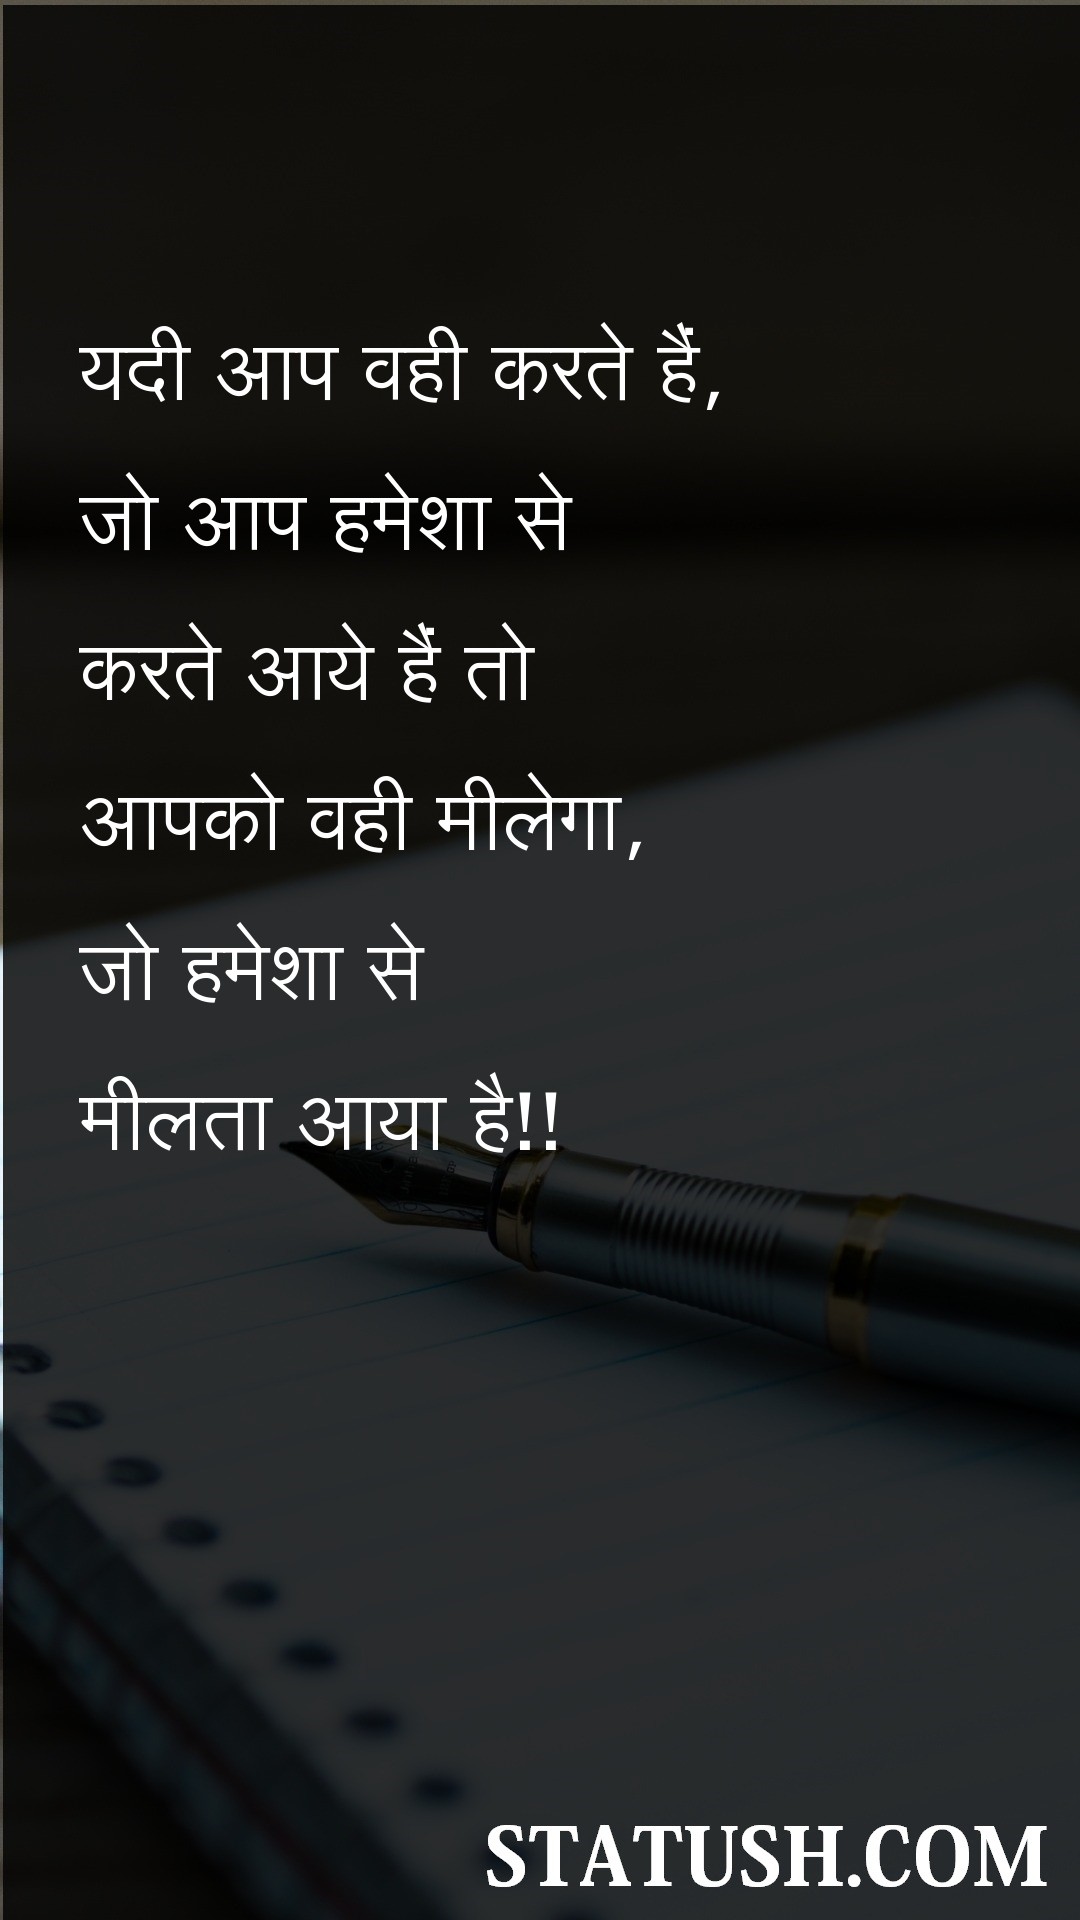 यदी आप वही करते हैं,
जो आप हमेशा से
करते आये हैं तो
आपको वही मीलेगा,
जो हमेशा से
मीलता आया है!!
STATUSH.COM